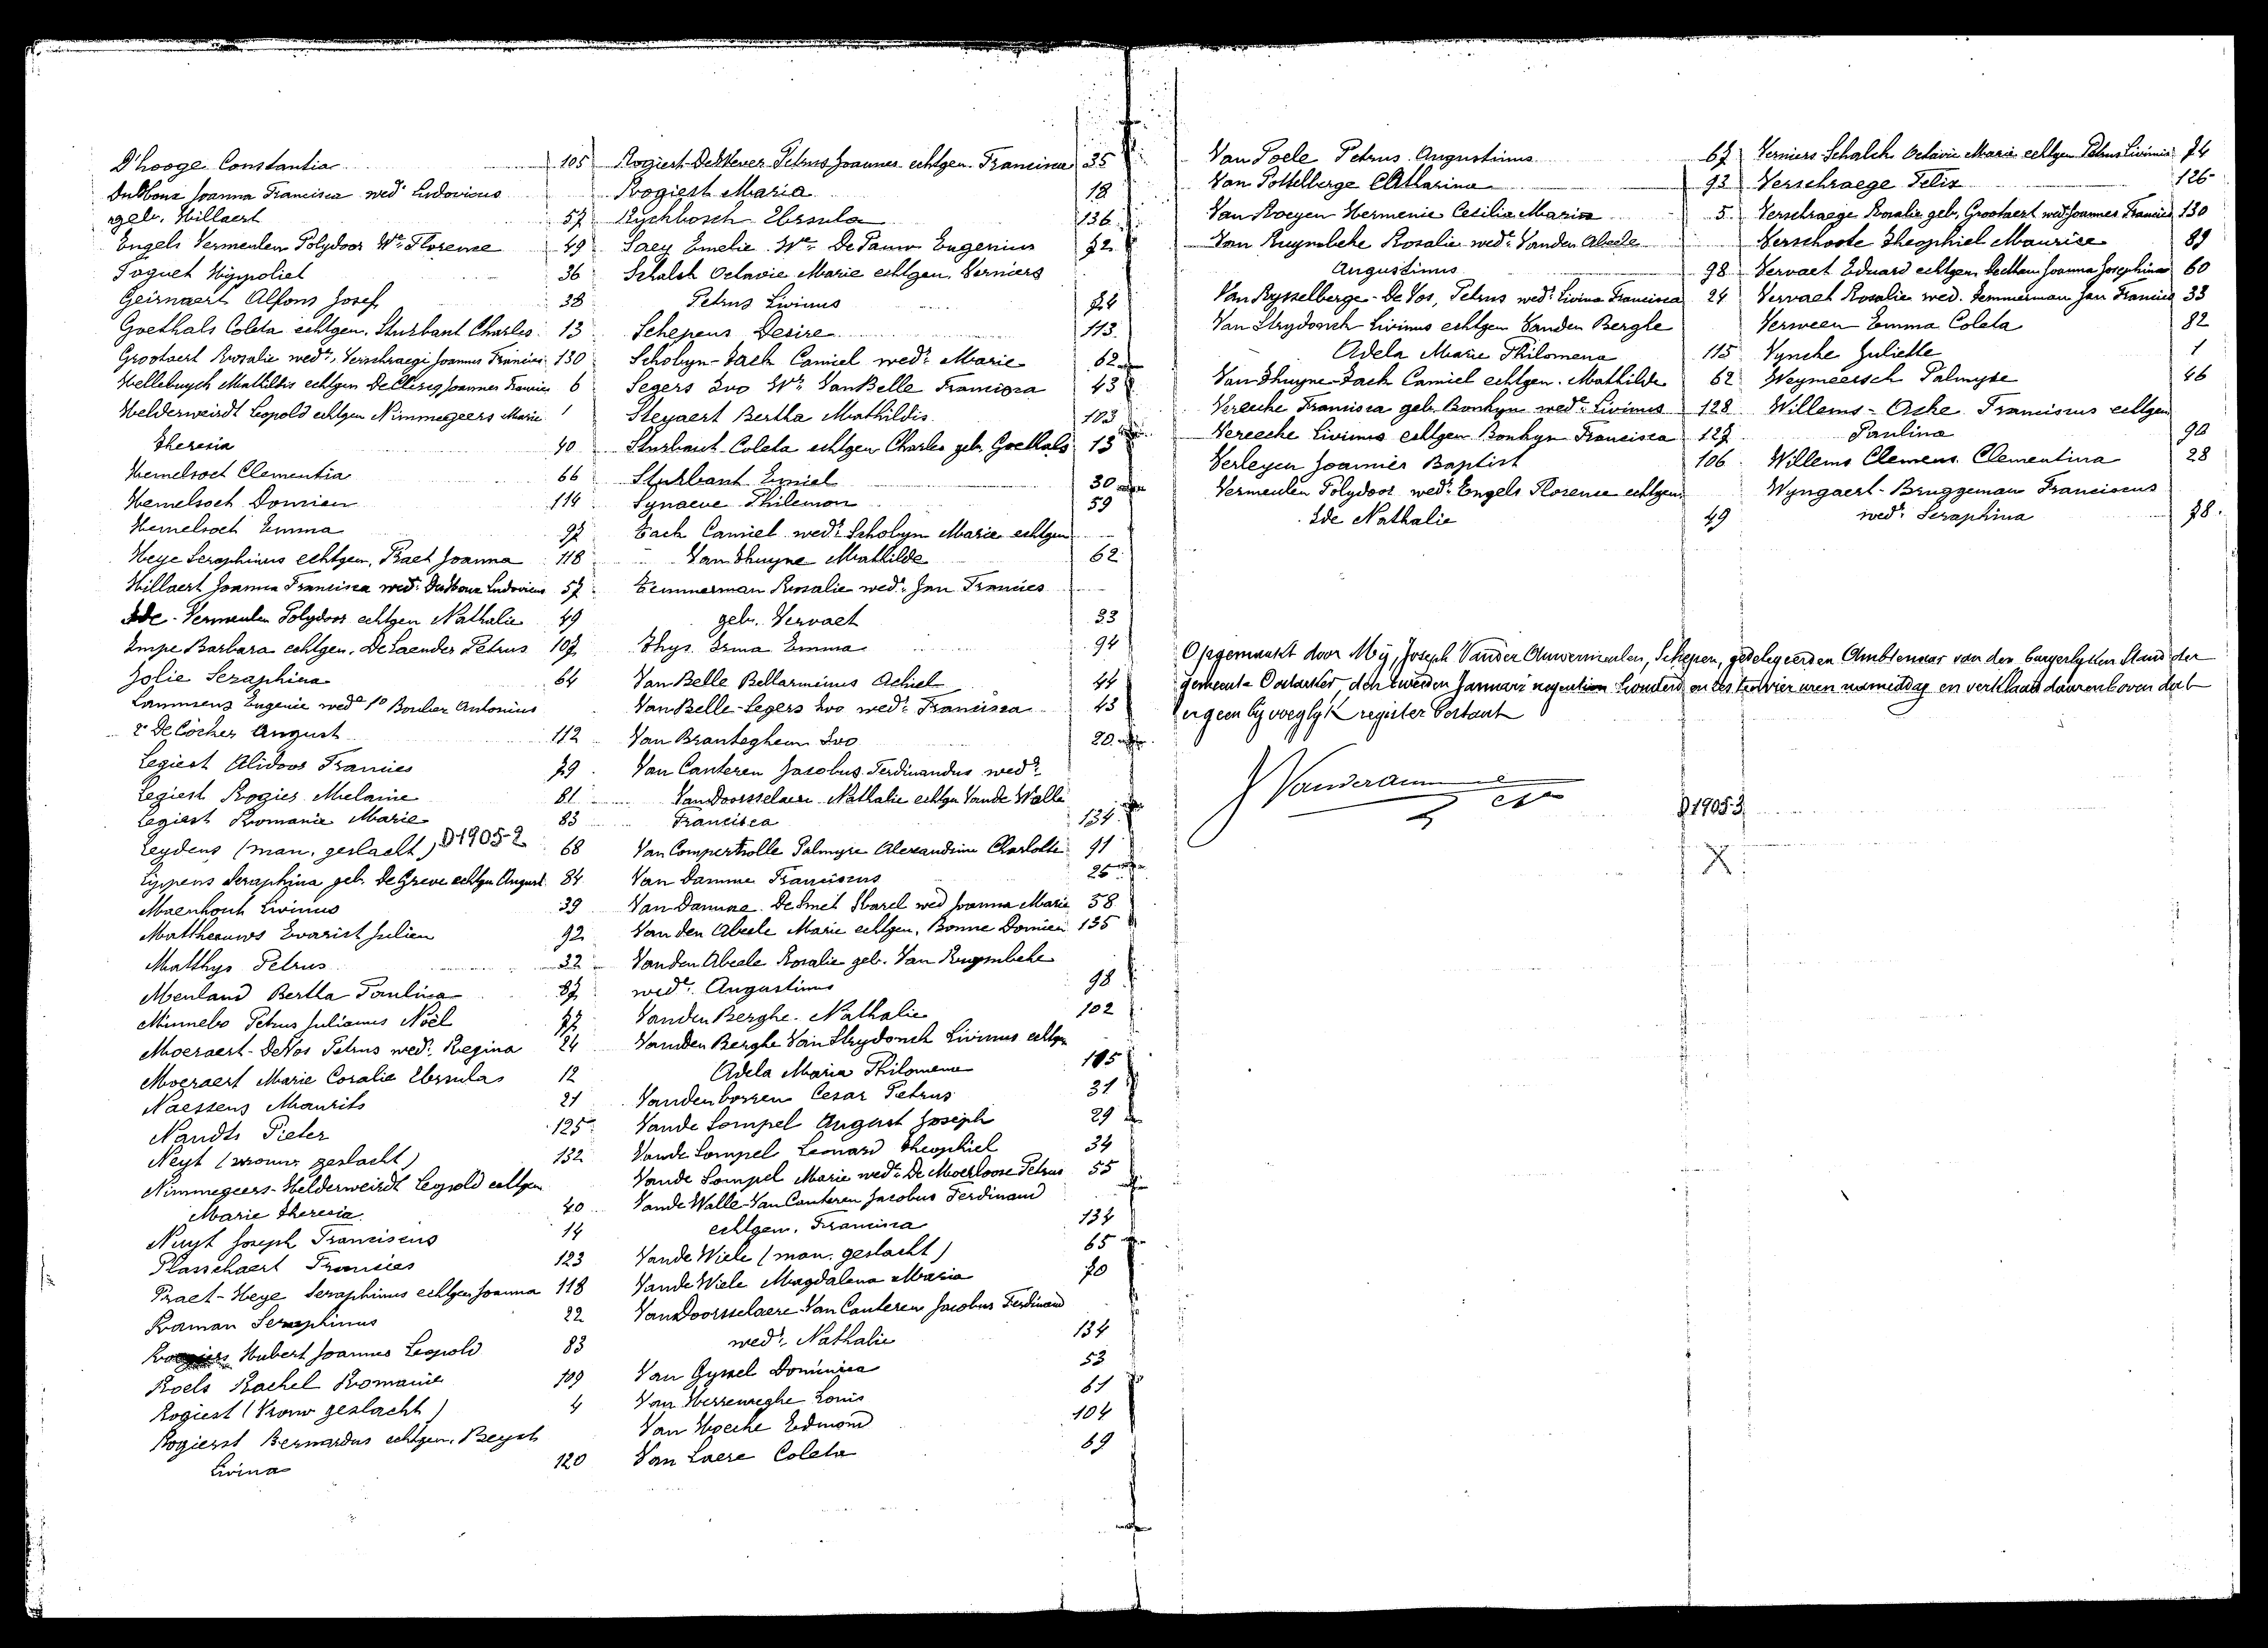 D'hooge Constantia 105
Joanna Francisca wed^e Ludovicus
geb. Hillaert 57
Engels Vermeulen Polydoor W^e Florence 49
Foquet Hyppoliet 36
Geirnaert Alfons Josef 38
Goethals Coleta echtgen. Sturbaut Charles 13
Grootaert Rosalie wed^e Verschraege Joannes Francies 130
Hellebuyck Mathildis echtgen De Clercq Joannes Francies 6
Helderweirdt Leopold echtgen Nimmegeers Marie
Theresia 40
Hemelsoet Clementia 66
Hemelsoet Domien 114
Hemelsoet Emma 97
Heye Seraphinus echtgen. Praet Joanna 118
Hillaert Joanna Francisca wed. Ludovicus 57
Ide - Vermeulen Polydoor echtgen Nathalie 49
Impe Barbara echtgen. De Laender Petrus 107
Jolie Seraphina 64
Lammens Eugenie wed^e 1° Antonius
2° De Cocker August 112
Legiest Alidoor Francies 79
Legiest Rogier Melanie 81
Legiest Romanie Marie 83
Leydens (man. geslacht) D 1905-2 68
Lippens Seraphina geb. De Greve echtgn August 84
Maenhout Livinus 39
Mattheeuws Evarist Julien 92
Matthys Petrus 32
Menland Bertha Paulina 87
Minnebo Petrus Julianus Noël 77
Moeraert - De Vos Petrus wed^r Regina 24
Moeraert Marie Coralie Ursula 12
Naessens Maurits 21
Nandts Pieter 125
Neyt (vrouw. geslacht) 132
Nimmegeers-Helderweirdt Leopold echtgen
Marie Theresia 40
Nuyt Joseph Franciscus 14
Plasschaert Francies 123
Praet-Heye Seraphinus echtgen Joanna 118
Raman Seraphinus 22
Hubert Joannes Leopold 83
Roels Rachel Romanie 109
Rogiest (Vrouw geslacht) 4
Rogierst Bernardus echtgen. Beyst
Livina 120
Rogiest-De Wever Petrus Joannes echtgen Francisca 35
Rogiest Maria 18
Ryckbosch Ursula 136
Saey Emelie W^e De Pauw Eugenius 72
Schalck Octavie Marie echtgen. Verniers
Petrus Livinus 74
Schepens Desire 113
Scholyn-Tack Camiel wed^r Marie 62
Segers Ivo W^r Van Belle Francisca 43
Steyaert Bertha Mathildis 103
Sturbaut Coleta echtgen Charles geb. Goethals 13
Sturbaut Emiel 30
Synaeve Philemon 59
Tack Camiel wed^r Scholyn Marie echtgen
Van Thuyne Mathilde 62
Temmerman Rosalie wed^e Jan Francies
geb. Vervaet 33
Thys Irma Emma 94
Van Belle Bellarminus Achiel 44
Van Belle-Segers Ivo wed^r Francisca 43
Van Branteghem Ivo 20
Van Canteren Jacobus Ferdinandus wed^r
Van Doorsselaere Nathalie echtgn Vande Walle
Francisca 134
Van Compernolle Palmyre Alexandrine Charlotte 91
Van Damme Franciscus 25
Van Damme De Smet Karel wed Joanna Marie 58
Van den Abeele Marie echtgen. Bonne Domien 135
Vanden Abeele Rosalie geb. Van Ruymbeke
wed^e Augustinus 98
Vanden Berghe Nathalie 102
Vanden Berghe Van Strydonck Livinus echtgn
Adela Maria Philomena 115
Vandenbossen Cesar Petrus 31
Vande Sompel August Joseph 29
Vande Sompel Leonard Theophiel 34
Vande Sompel Marie wed^e De Moerloose Petrus 55
Vande Walle-Van Canteren Jacobus Ferdinand
echtgen. Francisca 134
Vande Wiele (man. geslacht) 65
Vande Wiele Magdalena Maria 70
Van Doorsselaere-Van Canteren Jacobus Ferdinand
wed^r Nathalie 134
Van Gyssel Dominica 53
Van Herreweghe Louis 61
Van Hoecke Edmond 104
Van Laere Coleta 69
Van Poele Petrus Augustinus 67
Van Pottelberge Catharina 93
Van Roeyen Hermenie Cecilia Maria 5
Van Ruymbeke Rosalie wed^e Vanden Abeele
Augustinus 98
Van Rysselberge-De Vos, Petrus wed^r Livina Francisca 24
Van Strydonck Livinus echtgen Vanden Berghe
Adela Marie Philomena 115
Van Thuyne-Tack Camiel echtgen. Mathilde 62
Verecke Francisca geb. Bonkyn wed^e Livinus 128
Vereecke Livinus echtgen Bonkyn Francisca 127
Verleyen Joannes Baptist 106
Vermeulen Polydoor wed^r Engels Florence echtgen
Ide Nathalie 49
Verniers Schalck Octavie Marie echtgen Petrus Livinus 74
Verschraege Felix 126
Verschraege Rosalie geb. Grootaert wed Joannes Francies 130
Verschoote Theophiel Maurice 89
Vervaet Eduard echtgen Joanna Josephina 60
Vervaet Rosalie wed. Temmerman Jan Francies 33
Verween Emma Coleta 82
Vyncke Juliette 1
Weymeersch Palmyre 46
Willems - Acke Franciscus echtgen
Paulina 90
Willems Clemens Clementina 28
Wyngaert-Bruggeman Franciscus
wed^r Seraphina 78
Opgemaakt door My, Joseph Vander Auwermeulen, Schepen, gedelegeerden Ambtenaar van den burgerlyken Stand der
gemeente Oostakker, den tweeden Januari negentien honderd en zes ten vier uren namiddag en verklaard daarenboven dat
er geen byvoeglyk register bestaat
D 1905-3
X